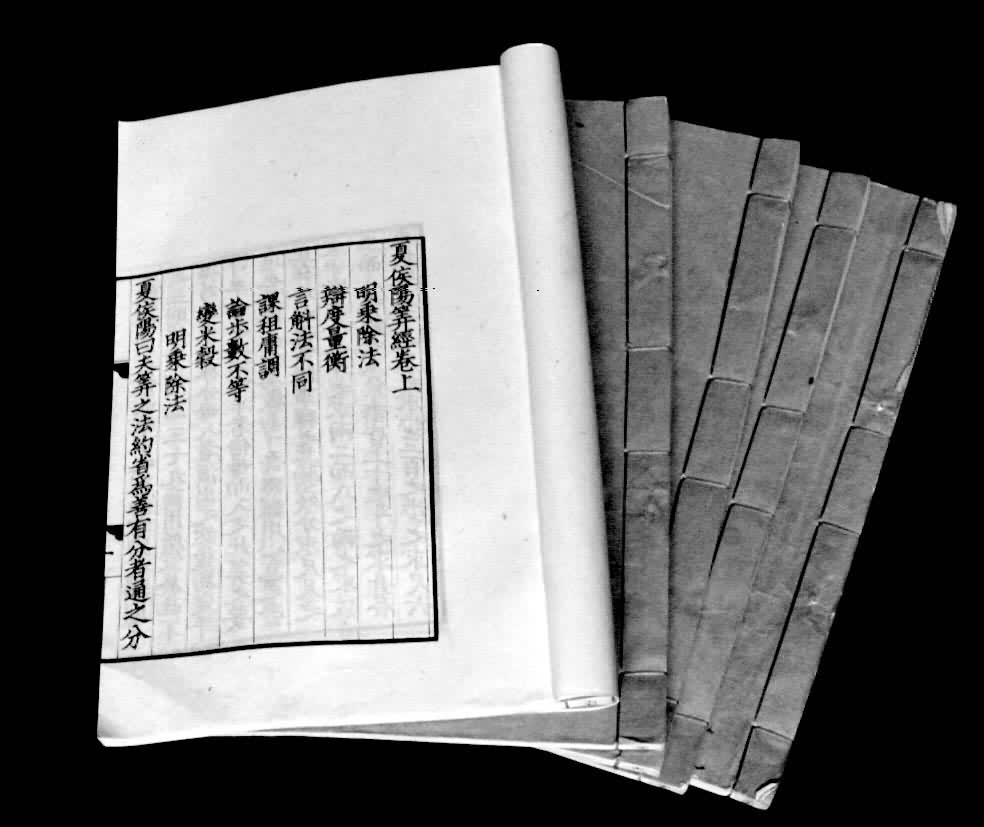 夏侯陽筭經卷上
明乘除法
辯度量衡
言斛法不同
課租庸調
論步數不等
變米穀
明乘除法
夏侯陽曰夫筭之法約省爲善有分者通之分